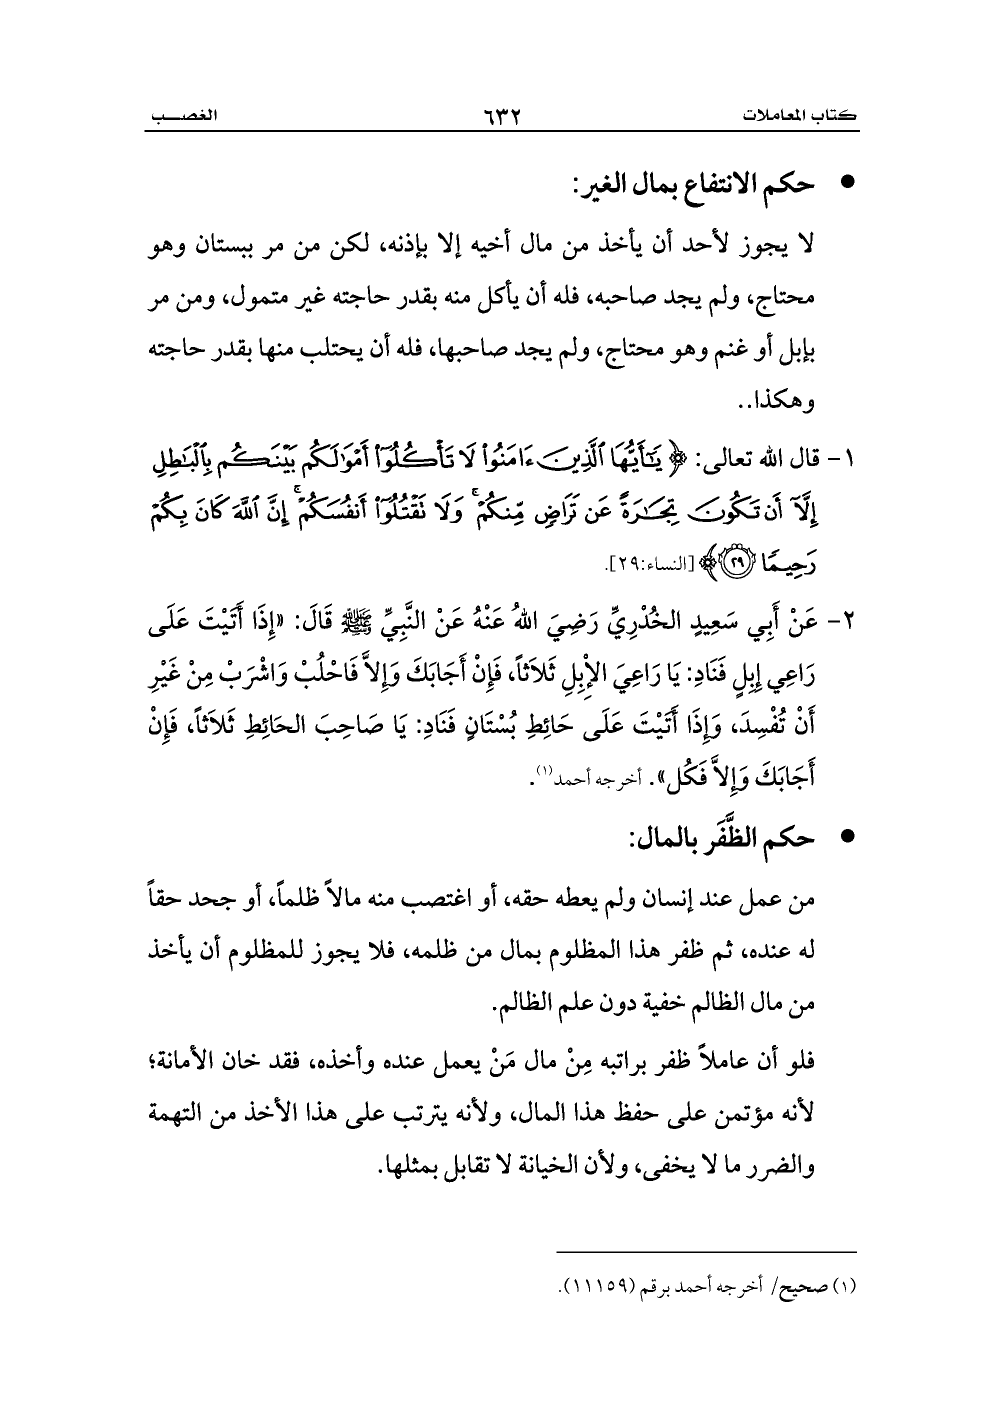 كتاب المعاملات ٦٣٢ الغصـــب
• حكم الانتفاع بمال الغير:
لا يجوز لأحد أن يأخذ من مال أخيه إلا بإذنه، لكن من مر ببستان وهو
محتاج، ولم يجد صاحبه، فله أن يأكل منه بقدر حاجته غير متمول، ومن مر
بإبل أو غنم وهو محتاج، ولم يجد صاحبها، فله أن يحتلب منها بقدر حاجته
وهكذا..
١- قال الله تعالى: ﴿ يَٰٓأَيُّهَا ٱلَّذِينَ ءَامَنُوا۟ لَا تَأْكُلُوٓا۟ أَمْوَٰلَكُم بَيْنَكُم بِٱلْبَٰطِلِ
إِلَّآ أَن تَكُونَ تِجَٰرَةً عَن تَرَاضٍ مِّنكُمْ ۚ وَلَا تَقْتُلُوٓا۟ أَنفُسَكُمْ ۚ إِنَّ ٱللَّهَ كَانَ بِكُمْ
رَحِيمًا ۝٢٩﴾ [النساء:٢٩].
٢- عَنْ أَبِي سَعِيدٍ الخُدْرِيِّ رَضِيَ اللهُ عَنْهُ عَنْ النَّبِيِّ ﷺ قَالَ: «إِذَا أَتَيْتَ عَلَى
رَاعِي إِبِلٍ فَنَادِ: يَا رَاعِيَ الإِبِلِ ثَلاَثاً، فَإِنْ أَجَابَكَ وَإِلاَّ فَاحْلُبْ وَاشْرَبْ مِنْ غَيْرِ
أَنْ تُفْسِدَ، وَإِذَا أَتَيْتَ عَلَى حَائِطِ بُسْتَانٍ فَنَادِ: يَا صَاحِبَ الحَائِطِ ثَلاَثاً، فَإِنْ
أَجَابَكَ وَإِلاَّ فَكُل». أخرجه أحمد(١).
• حكم الظَّفَر بالمال:
من عمل عند إنسان ولم يعطه حقه، أو اغتصب منه مالاً ظلماً، أو جحد حقاً
له عنده، ثم ظفر هذا المظلوم بمال من ظلمه، فلا يجوز للمظلوم أن يأخذ
من مال الظالم خفية دون علم الظالم.
فلو أن عاملاً ظفر براتبه مِنْ مال مَنْ يعمل عنده وأخذه، فقد خان الأمانة؛
لأنه مؤتمن على حفظ هذا المال، ولأنه يترتب على هذا الأخذ من التهمة
والضرر ما لا يخفى، ولأن الخيانة لا تقابل بمثلها.
(١) صحيح/ أخرجه أحمد برقم (١١١٥٩).